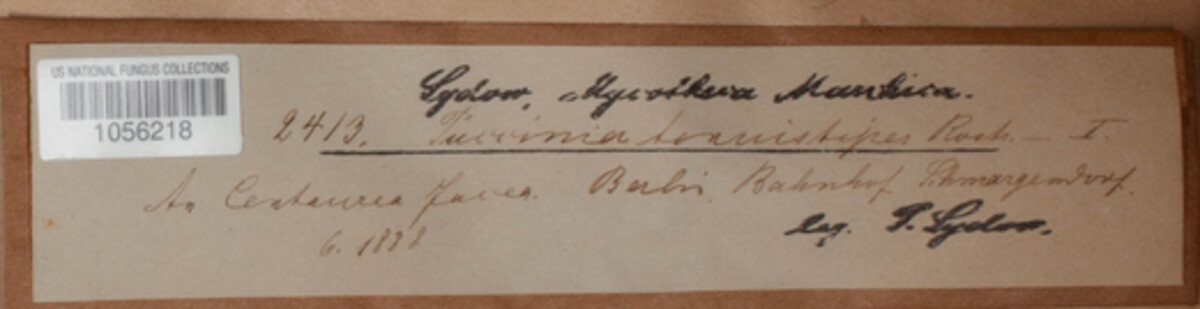 US NATIONAL FUNGUS COLLECTIONS
1056218
Sydow, Mycotheca Marchica.
2413. Puccinia tenuistipes Rostr. — I.
An Centaurea Jacea. Berlin, Bahnhof Schmargendorf.
6. 1888
leg. P. Sydow.